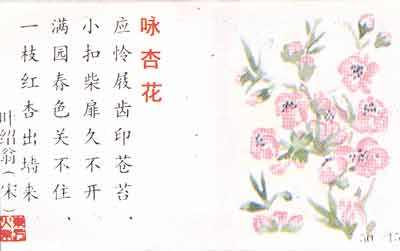 咏杏花
应怜屐齿印苍苔、
小扣柴扉久不开
满园春色关不住、
一枝红杏出墙来
叶绍翁（宋）